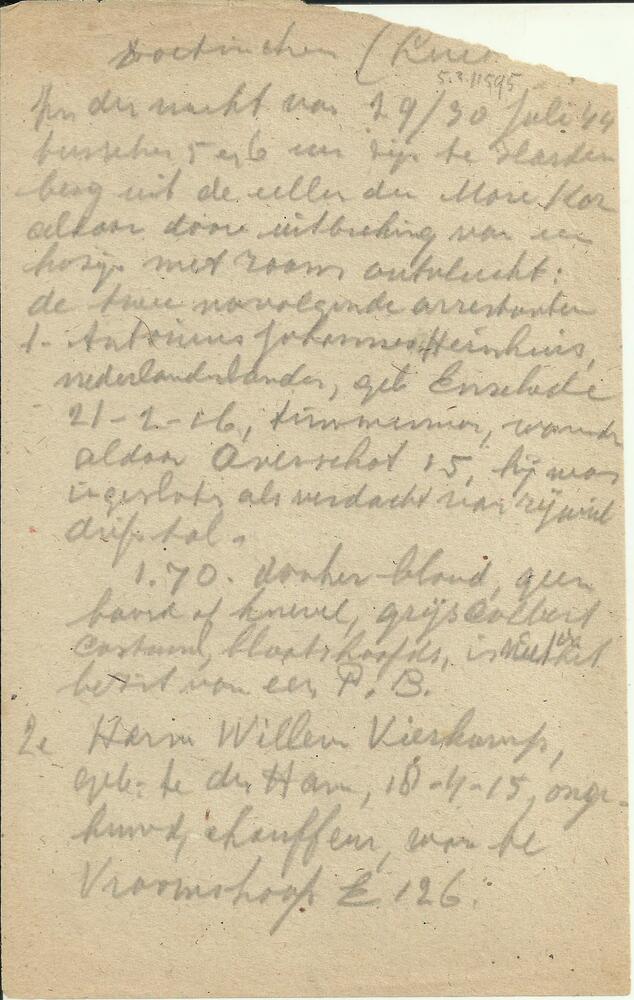 Doetinchem (
5.3.11595
In der nacht van 29/30 Juli 44
tusschen 5 en 6 uur zijn te Harden
berg uit de cellen der Mare Kaz
aldaar door uitbreking van een
kozijn met raam ontvlucht:
de twee navolgende arrestanten
1. Antonius Johannes Heinhuis,
nederlander, geb Enschede
21-2-16, timmerman, wonende
aldaar Overschot 15, hij was
ingesloten als verdacht van rijwiel
diefstal.
1.70. donker blond, geen
baard of knevel, grijs colbert
costuum, blootshoofds, is
bezit van een P.B.
2e Harm Willem Vierkamp,
geb. te den Ham, 18-4-15, onge-
huwd, chauffeur, won te
Vroomshoop E 126.